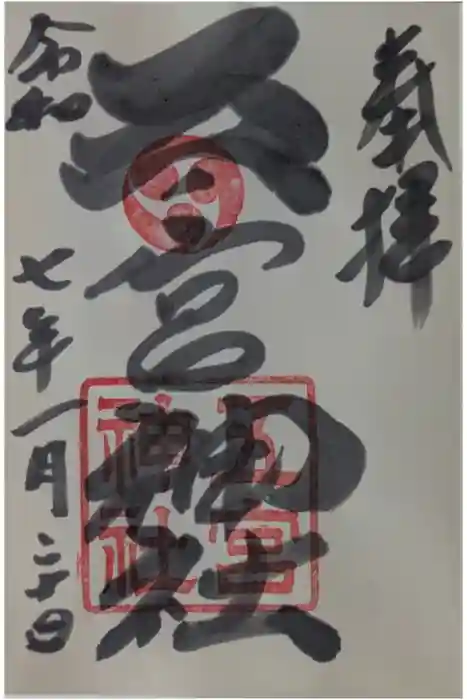 奉拝
五宮神社
五宮
神社
令和七年一月二十日